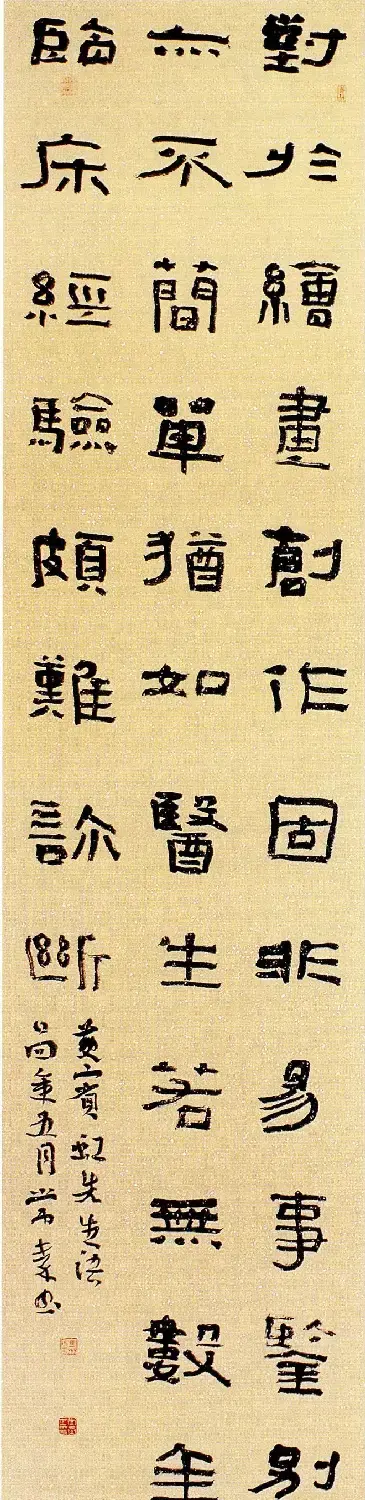 對於繪畫創作固非易事鑒別
亦不簡單猶如醫生若無數年
臨床經驗頗難診斷
黃賓虹先生語
年五月